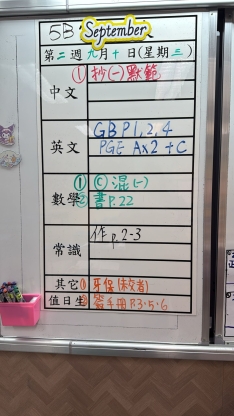 5B
September
第二週九月十日(星期三)
中文 ①抄(一)默範
英文 GB P1, 2, 4
PGE Ax2 + C
數學 ① Ⓒ 混(一)
② 書P.22
常識 作 p. 2-3
其它 ① 牙保(未交者)
值日生 ② 簽手冊 P.3-5-6